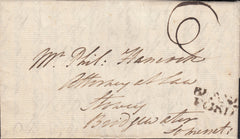 Mr. Phil: Hancock
Attorney at Law
Stowey
Bridgwater
Somerset
FORD